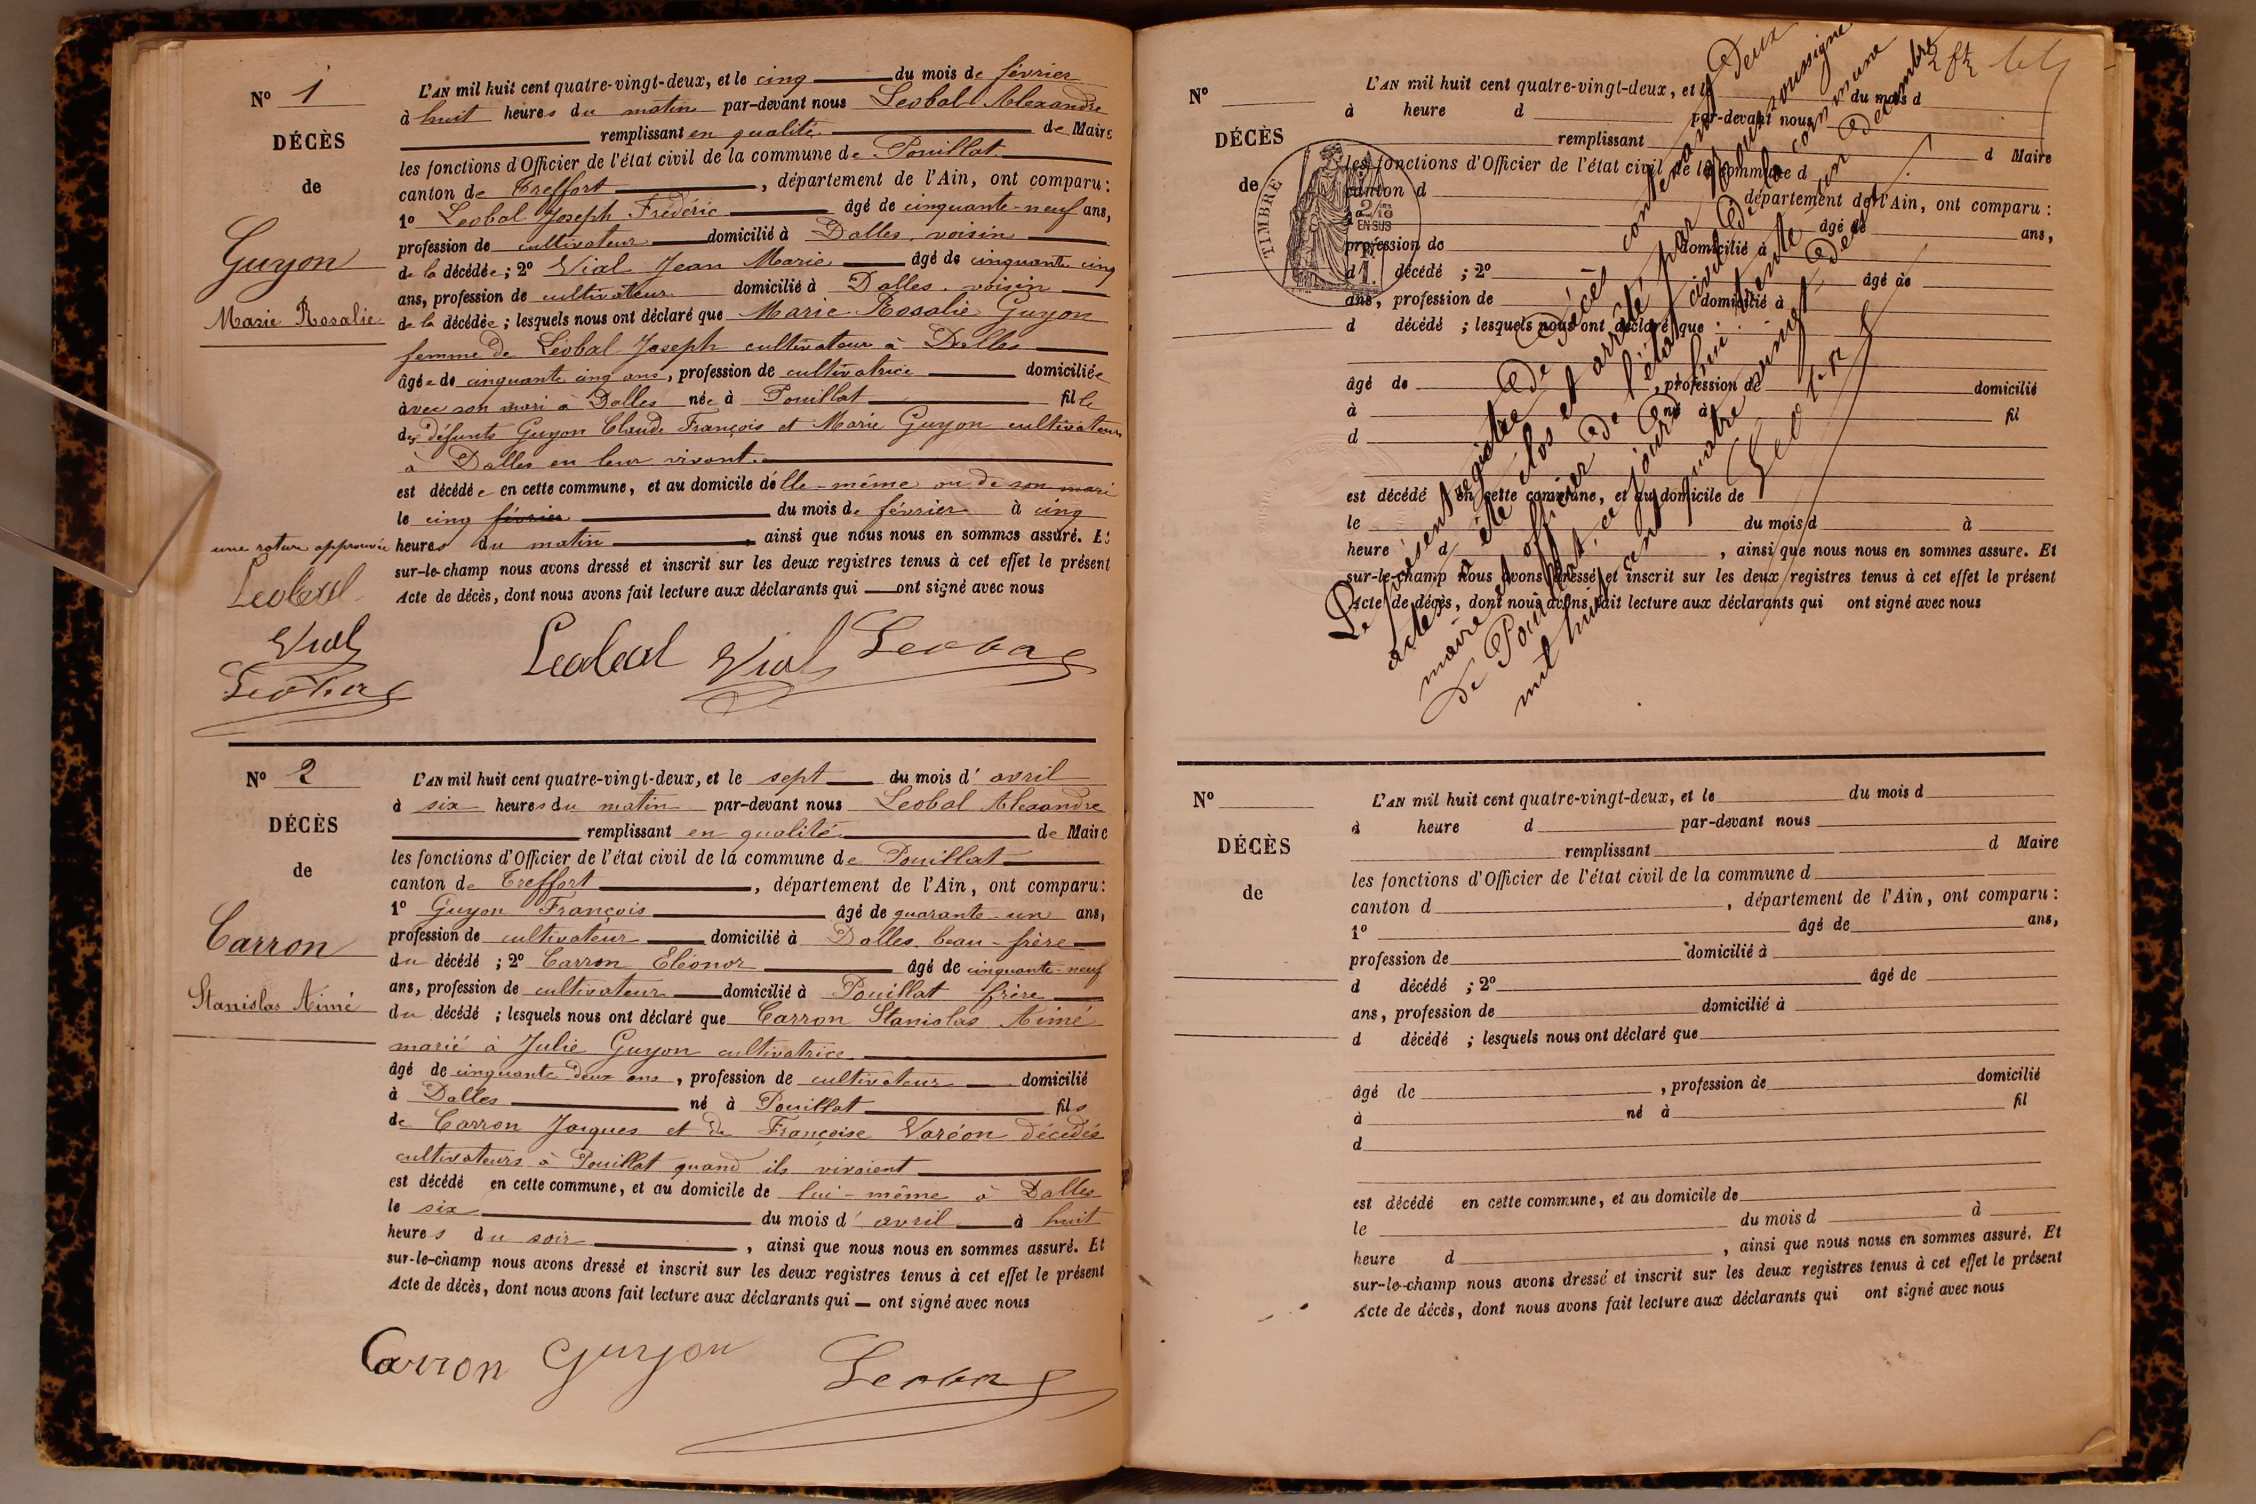 N° 1
DÉCÈS
de
Guyon
Marie Rosalie
L'AN mil huit cent quatre-vingt-deux, et le cinq du mois de février
à huit heures du matin par-devant nous Léobal Alexandre
remplissant en qualité de Maire
les fonctions d'Officier de l'état civil de la commune de Pouillat
canton de Treffort, département de l'Ain, ont comparu:
1° Léobal Joseph Frédéric âgé de cinquante-neuf ans,
profession de cultivateur domicilié à Dalles, voisin
de la décédée; 2° Vial Jean Marie âgé de cinquante cinq
ans, profession de cultivateur domicilié à Dalles, voisin
de la décédée; lesquels nous ont déclaré que Marie Rosalie Guyon
femme de Léobal Joseph cultivateur à Dalles
âgée de cinquante cinq ans, profession de cultivatrice domiciliée
avec son mari à Dalles née à Pouillat fille
des défunts Guyon Claude François et Marie Guyon cultivateurs
à Dalles en leur vivant.
est décédée en cette commune, et au domicile d'elle-même ou de son mari
le cinq février du mois de février à cinq
heures du matin, ainsi que nous nous en sommes assuré. Et
sur-le-champ nous avons dressé et inscrit sur les deux registres tenus à cet effet le présent
Acte de décès, dont nous avons fait lecture aux déclarants qui ont signé avec nous
une rature approuvée
Leobal
Vial
Leobal
Leobal Vial Leobal
N° 2
DÉCÈS
de
Carron
Stanislas Aimé
L'AN mil huit cent quatre-vingt-deux, et le sept du mois d'avril
à six heures du matin par-devant nous Léobal Alexandre
remplissant en qualité de Maire
les fonctions d'Officier de l'état civil de la commune de Pouillat
canton de Treffort, département de l'Ain, ont comparu:
1° Guyon François âgé de quarante-un ans,
profession de cultivateur domicilié à Dalles, beau-frère
du décédé; 2° Carron Eléonor âgé de cinquante-neuf
ans, profession de cultivateur domicilié à Pouillat frère
du décédé; lesquels nous ont déclaré que Carron Stanislas Aimé
marié à Julie Guyon cultivatrice
âgé de cinquante deux ans, profession de cultivateur domicilié
à Dalles né à Pouillat fils
de Carron Jacques et de Françoise Varéon décédés
cultivateurs à Pouillat quand ils vivaient
est décédé en cette commune, et au domicile de lui-même à Dalles
le six du mois d'avril à huit
heures du soir, ainsi que nous nous en sommes assuré. Et
sur-le-champ nous avons dressé et inscrit sur les deux registres tenus à cet effet le présent
Acte de décès, dont nous avons fait lecture aux déclarants qui ont signé avec nous
Carron Guyon Leobal
N°
DÉCÈS
de
L'AN mil huit cent quatre-vingt-deux, et le du mois d
à heure d par-devant nous
remplissant d Maire
les fonctions d'Officier de l'état civil de la commune d
canton d département de l'Ain, ont comparu:
âgé de ans,
profession de domicilié à
d décédé; 2° âgé de
ans, profession de domicilié à
d décédé; lesquels nous ont déclaré que
âgé de, profession de domicilié
à né à fil
d
est décédé en cette commune, et au domicile de
le du mois d à
heure d, ainsi que nous nous en sommes assuré. Et
sur-le-champ nous avons dressé et inscrit sur les deux registres tenus à cet effet le présent
Acte de décès, dont nous avons fait lecture aux déclarants qui ont signé avec nous
TIMBRE
2/10
EN SUS
Le présent registre de décès contenant deux
actes a été clos et arrêté par nous soussigné
maire et officier de l'état civil de la commune
de Pouillat, ce jourd'hui trente un décembre
mil huit cent quatre vingt-deux
Leobal
N°
DÉCÈS
de
L'AN mil huit cent quatre-vingt-deux, et le du mois d
à heure d par-devant nous
remplissant d Maire
les fonctions d'Officier de l'état civil de la commune d
canton d, département de l'Ain, ont comparu:
1° âgé de ans,
profession de domicilié à
d décédé; 2° âgé de
ans, profession de domicilié à
d décédé; lesquels nous ont déclaré que
âgé de, profession de domicilié
à né à fil
d
est décédé en cette commune, et au domicile de
le du mois d à
heure d, ainsi que nous nous en sommes assuré. Et
sur-le-champ nous avons dressé et inscrit sur les deux registres tenus à cet effet le présent
Acte de décès, dont nous avons fait lecture aux déclarants qui ont signé avec nous